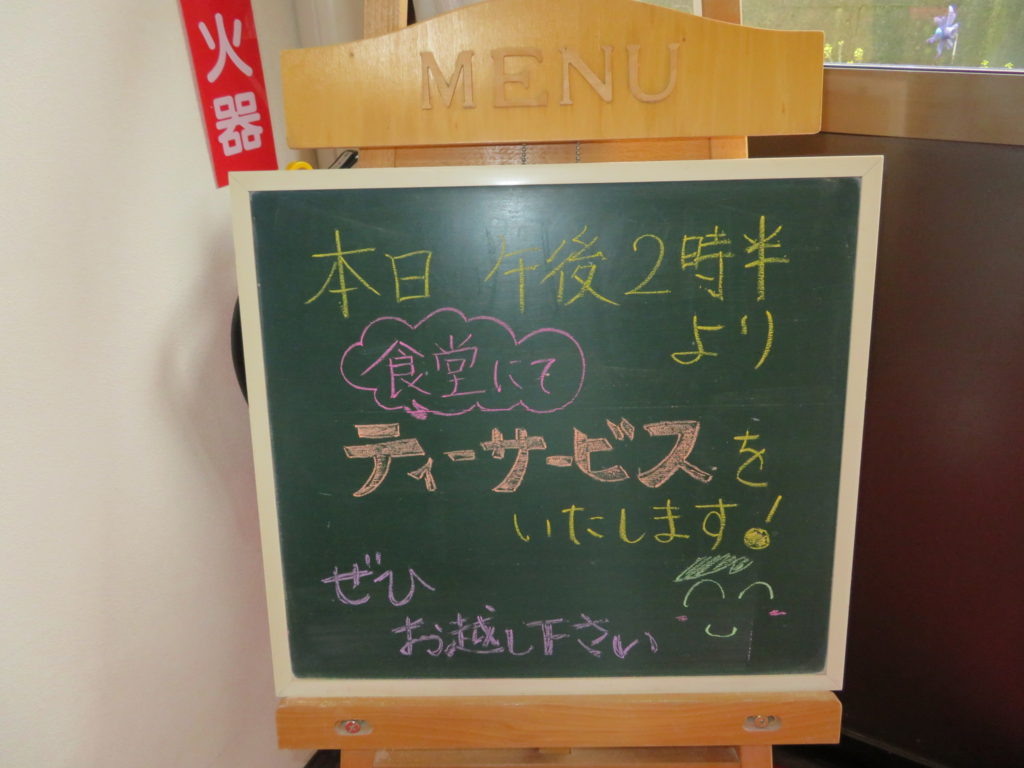 火器
MENU
本日 午後2時半
より
食堂にて
ティーサービスを
いたします!
ぜひ
お越し下さい